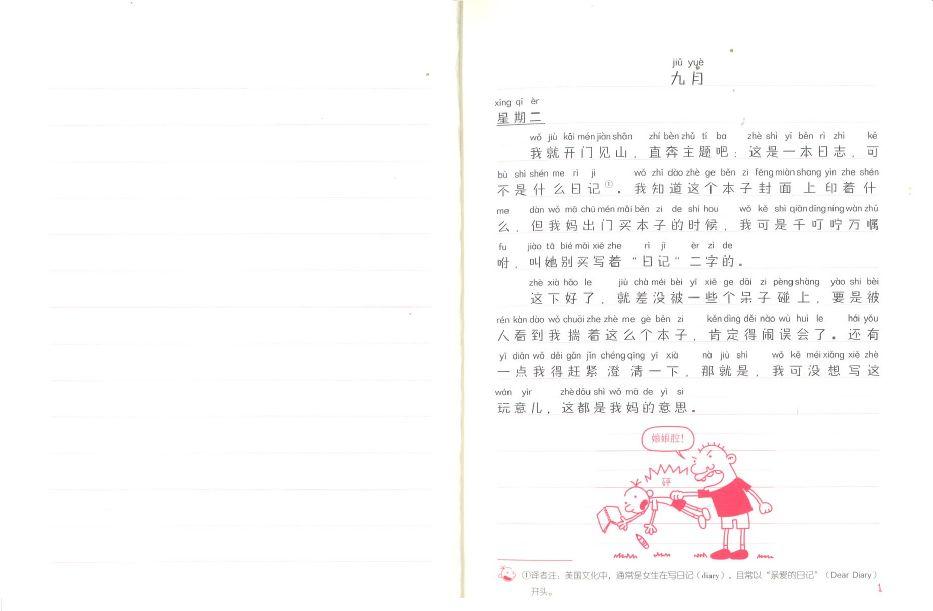 jiǔ yuè
九月
xīng qī èr
星期二
wǒ jiù kāi mén jiàn shān zhí bèn zhǔ tí ba zhè shì yī běn rì zhì kě
我就开门见山，直奔主题吧：这是一本日志，可
bù shì shén me rì jì wǒ zhī dào zhè ge běn zi fēng miàn shang yìn zhe shén
不是什么日记①。我知道这个本子封面上印着什
me dàn wǒ mā chū mén mǎi běn zi de shí hou wǒ kě shì qiān dīng níng wàn zhǔ
么，但我妈出门买本子的时候，我可是千叮咛万嘱
fu jiào tā bié mǎi xiě zhe rì jì èr zì de
咐，叫她别买写着“日记”二字的。
zhè xià hǎo le jiù chà méi bèi yī xiē ge dāi zi pèng shàng yào shi bèi
这下好了，就差没被一些个呆子碰上，要是被
rén kàn dào wǒ chuāi zhe zhè me gè běn zi kěn dìng děi nào wù huì le hái yǒu
人看到我揣着这么个本子，肯定得闹误会了。还有
yī diǎn wǒ děi gǎn jǐn chéng qīng yī xià nà jiù shì wǒ kě méi xiǎng xiě zhè
一点我得赶紧澄清一下，那就是，我可没想写这
wán yìr zhè dōu shì wǒ mā de yì si
玩意儿，这都是我妈的意思。
娘娘腔！
砰
①译者注：美国文化中，通常是女生在写日记（diary），且常以“亲爱的日记”（Dear Diary）
开头。
1